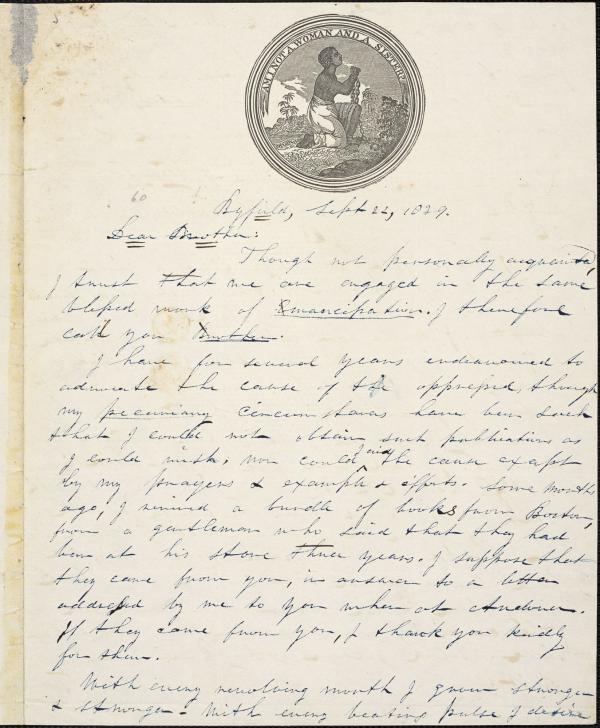 AM I NOT A WOMAN AND A SISTER
60
Byfield, Sept 22, 1839.
Dear Brother:
Though not personally acquainted,
I trust that we are engaged in the same
blessed work of Emancipation. I therefore
call you Brother.
I have for several years endeavored to
advocate the cause of the oppressed, though
my pecuniary circumstances have been such
that I could not obtain such publications as
I could wish; nor could I aid the cause except
by my prayers & example & efforts. Some months
ago, I received a bundle of books from Boston,
from a gentleman who said that they had
been at his store three years. I suppose that
they came from you, in answer to a letter
addressed by me to you when at Andover.
If they came from you, I thank you kindly
for them.
With every revolving month I grow stronger
& stronger. With every beating pulse I desire